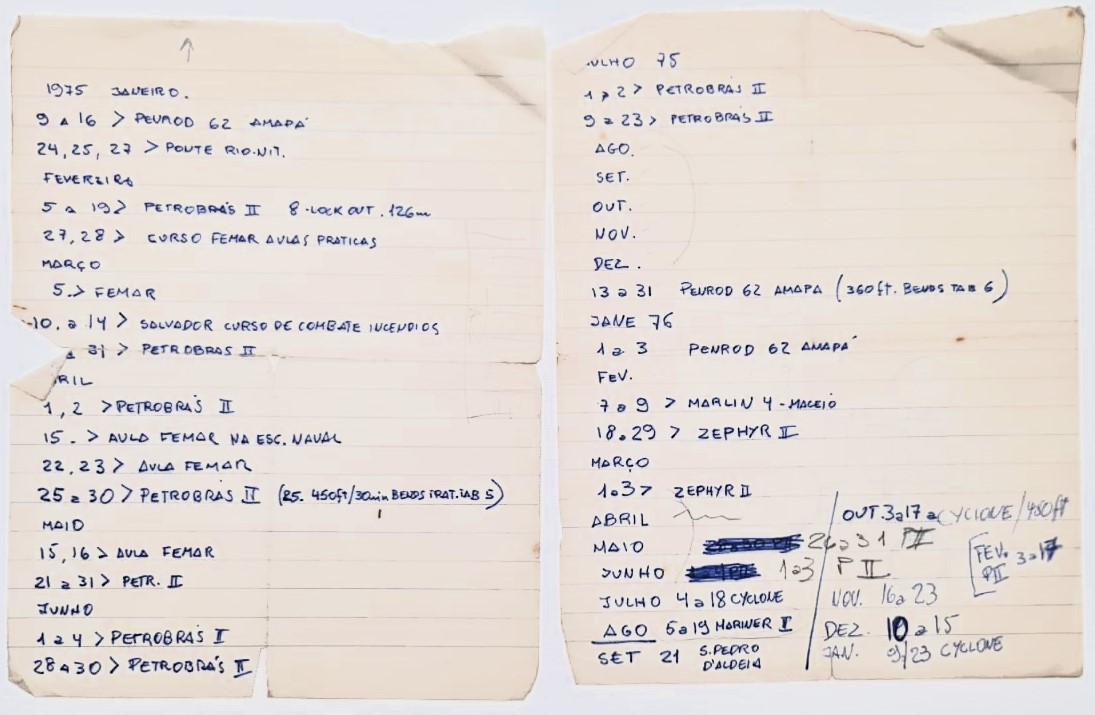 1975 JANEIRO.
9 a 16 > PENROD 62 AMAPÁ
24, 25, 27 > PONTE RIO-NIT.
FEVEREIRO
5 a 19 > PETROBRÁS II 8-LOCK OUT. 126m
27, 28 > CURSO FEMAR AULAS PRATICAS
MARÇO
5. > FEMAR
10. a 14 > SALVADOR CURSO DE COMBATE INCENDIOS
a 31 > PETROBRAS II
RIL
1, 2 > PETROBRÁS II
15. > AULA FEMAR NA ESC. NAVAL
22, 23 > AULA FEMAR
25 a 30 > PETROBRÁS II (25. 450ft/30min BENDS TRAT. TAB 5)
MAIO
15, 16 > AULA FEMAR
21 a 31 > PETR. II
JUNHO
1 a 4 > PETROBRÁS II
28 a 30 > PETROBRÁS II
ULHO 75
1 > 2 > PETROBRÁS II
9 a 23 > PETROBRÁS II
AGO.
SET.
OUT.
NOV.
DEZ.
13 a 31 PENROD 62 AMAPA (360ft. BENDS TAB 6)
JANE 76
1 a 3 PENROD 62 AMAPÁ
FEV.
7 a 9 > MARLIN 4 - MACEIÓ
18.29 > ZEPHYR II
MARÇO
1.3 > ZEPHYR II
ABRIL
MAIO 26 a 31 PII
JUNHO 1 a 3 P II
JULHO 4 a 18 CYCLONE
AGO 6 a 19 MARINER I
SET 21 S. PEDRO D'ALDEIA
OUT. 3 a 17 a CYCLONE / 450ft
FEV. 3 a 17
PII
NOV. 16 a 23
DEZ. 10 a 15
JAN. 9/23 CYCLONE